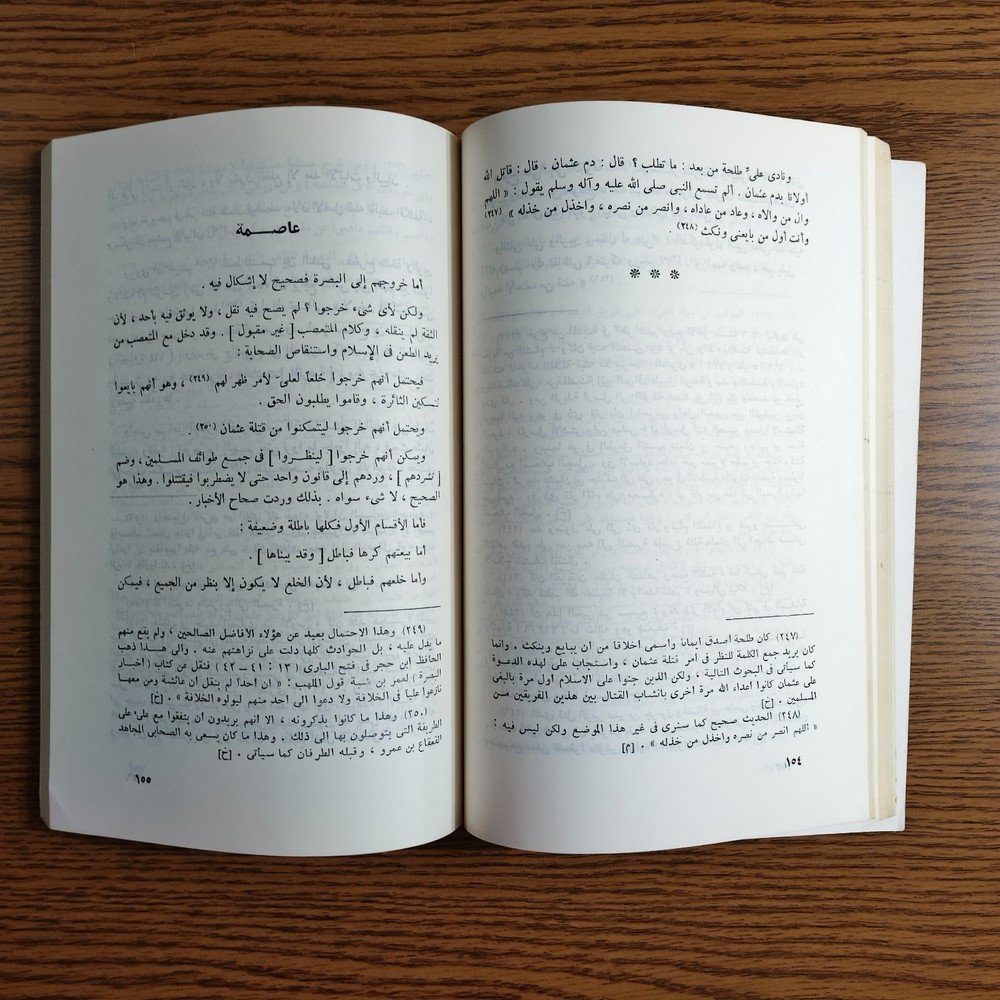 ونادى علىّ طلحة من بعد : ما تطلب ؟ قال : دم عثمان . قال : قاتل الله
أولانا بدم عثمان . ألم تسمع النبى صلى الله عليه وآله وسلم يقول : « اللهم
وال من والاه ، وعاد من عاداه ، وانصر من نصره ، واخذل من خذله » (٢٤٧)
وأنت أول من بايعنى ونكث (٢٤٨) .
* * *
(٢٤٧) كان طلحة أصدق ايمانا وأسمى اخلاقا من أن يبايع وينكث . وانما
كان يريد جمع الكلمة للنظر فى أمر قتلة عثمان ، واستجاب على لهذه الدعوة
كما سيأتى فى البحوث التالية ، ولكن الذين جنوا على الاسلام أول مرة بالبغى
على عثمان كانوا أعداء الله مرة أخرى بانشاب القتال بين هذين الفريقين مـن
المسلمين . [خ]
(٢٤٨) الحديث صحيح كما سنرى فى غير هذا الموضع ولكن ليس فيه :
« اللهم انصر من نصره واخذل من خذله » . [م]
١٥٤
عاصـــمة
أما خروجهم إلى البصرة فصحيح لا إشكال فيه .
ولكن لأى شىء خرجوا ؟ لم يصح فيه نقل ، ولا يوثق فيه بأحد ، لأن
الثقة لم ينقله ، وكلام المتعصب [ غير مقبول ] . وقد دخل مع المتعصب من
يريد الطعن فى الإسلام واستنقاص الصحابة :
فيحتمل أنهم خرجوا خلعاً لعلىّ لأمر ظهر لهم (٢٤٩) ، وهو أنهم بايعوا
لتسكين الثائرة ، وقاموا يطلبون الحق .
ويحتمل أنهم خرجوا ليتمكنوا من قتلة عثمان (٢٥٠) .
ويمكن أنهم خرجوا [ لينظـروا ] فى جمـع طوائف المسـلمين، وضم
[ تشردهم ] ، وردهم إلى قانون واحد حتى لا يضطربوا فيقتتلوا . وهذا هو
الصحيح ، لا شىء سواه . بذلك وردت صحاح الأخبار .
فأما الأقسام الأول فكلها باطلة وضعيفة :
أما بيعتهم كرها فباطل [ وقد بيناها ] .
وأما خلعهم فباطل ، لأن الخلع لا يكون إلا بنظر من الجميع ، فيمكن
(٢٤٩) وهذا الاحتمال بعيد عن هؤلاء الأفاضل الصالحين ، ولم يقع منهم
ما يدل عليه ، بل الحوادث كلها دلت على نزاهتهم عنه . والى هـذا ذهب
الحافظ ابن حجر فى فتح البارى ( ١٣ : ٤١ - ٤٢ ) فنقل عن كتاب ( أخبار
البصرة ) لعمر بن شبة قول المهلب : « ان أحدا لم ينقل أن عائشة ومن معها
نازعوا عليا فى الخلافة ولا دعوا الى أحد منهم ليولوه الخلافة » . [خ]
(٢٥٠) وهذا ما كانوا يذكرونه ، الا انهم يريدون أن يتفقوا مع علىّ على
الطريقة التى يتوصلون بها الى ذلك . وهذا ما كان يسعى به الصحابى المجاهد
القعقاع بن عمرو ، وقبله الطرفان كما سيأتى . [خ]
١٥٥